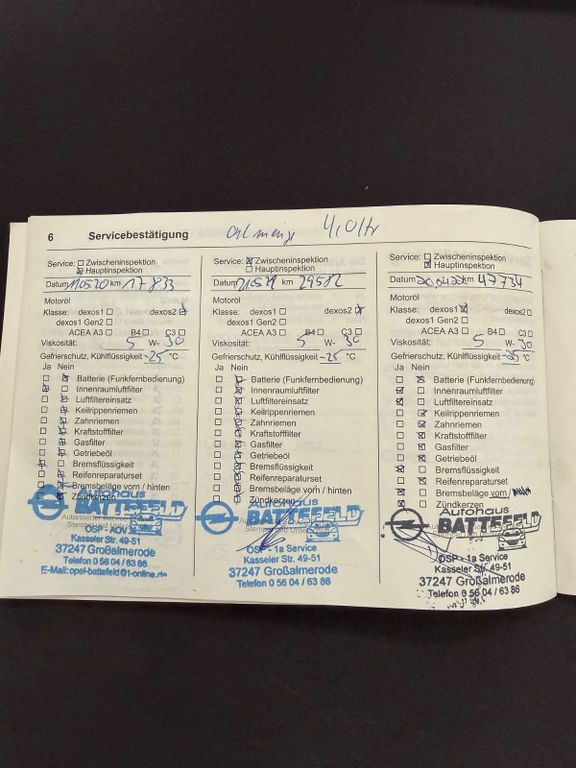 6 Servicebestätigung 4,0 ltr
Service: Zwischeninspektion
Hauptinspektion
Datum 11.05.20 km 17833
Motoröl
Klasse: dexos1 dexos2
dexos1 Gen2
ACEA A3 B4 C3
Viskosität: 5 W- 30
Gefrierschutz, Kühlflüssigkeit -25 °C
Ja Nein
Batterie (Funkfernbedienung)
Innenraumluftfilter
Luftfiltereinsatz
Keilrippenriemen
Zahnriemen
Kraftstofffilter
Gasfilter
Getriebeöl
Bremsflüssigkeit
Reifenreparaturset
Bremsbeläge vorn / hinten
Zündkerzen
Autohaus
BATTEFELD
OSP - AOV
Kasseler Str. 49-51
37247 Großalmerode
Telefon 0 56 04 / 63 86
E-Mail: opel-battefeld@t-online.de
Service: Zwischeninspektion
Hauptinspektion
Datum km 29582
Motoröl
Klasse: dexos1 dexos2
dexos1 Gen2
ACEA A3 B4 C3
Viskosität: 5 W- 30
Gefrierschutz, Kühlflüssigkeit -25 °C
Ja Nein
Batterie (Funkfernbedienung)
Innenraumluftfilter
Luftfiltereinsatz
Keilrippenriemen
Zahnriemen
Kraftstofffilter
Gasfilter
Getriebeöl
Bremsflüssigkeit
Reifenreparaturset
Bremsbeläge vorn / hinten
Zündkerzen
Autohaus
BATTEFELD
OSP - 1a Service
Kasseler Str. 49-51
37247 Großalmerode
Telefon 0 56 04 / 63 86
Service: Zwischeninspektion
Hauptinspektion
Datum km 47734
Motoröl
Klasse: dexos1 dexos2
dexos1 Gen2
ACEA A3 B4 C3
Viskosität: 5 W- 30
Gefrierschutz, Kühlflüssigkeit °C
Ja Nein
Batterie (Funkfernbedienung)
Innenraumluftfilter
Luftfiltereinsatz
Keilrippenriemen
Zahnriemen
Kraftstofffilter
Gasfilter
Getriebeöl
Bremsflüssigkeit
Reifenreparaturset
Bremsbeläge vorn /
Zündkerzen
Autohaus
BATTEFELD
OSP - 1a Service
Kasseler Str. 49-51
37247 Großalmerode
Telefon 0 56 04 / 63 86